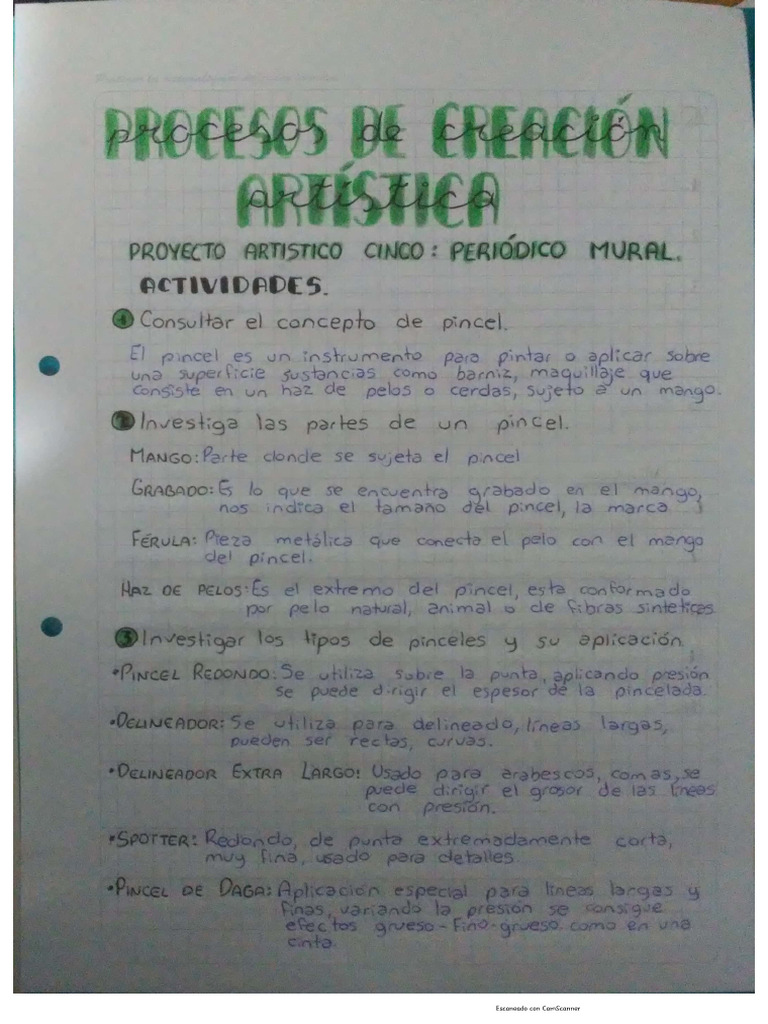 PROCESOS DE CREACIÓN
procesos de creación
ARTÍSTICA
artística
PROYECTO ARTISTICO CINCO: PERIÓDICO MURAL.
ACTIVIDADES.
1 Consultar el concepto de pincel.
El pincel es un instrumento para pintar o aplicar sobre
una superficie sustancias como barniz, maquillaje que
consiste en un haz de pelos o cerdas, sujeto a un mango.
2 Investiga las partes de un pincel.
MANGO: Parte donde se sujeta el pincel
GRABADO: Es lo que se encuentra grabado en el mango,
nos indica el tamaño del pincel, la marca
FÉRULA: Pieza metálica que conecta el pelo con el mango
del pincel.
HAZ DE PELOS: Es el extremo del pincel, esta conformado
por pelo natural, animal o de fibras sinteticas
3 Investigar los tipos de pinceles y su aplicación.
•PINCEL REDONDO: Se utiliza sobre la punta, aplicando presión
se puede dirigir el espesor de la pincelada.
•DELINEADOR: Se utiliza para delineado, líneas largas,
pueden ser rectas, curvas.
•DELINEADOR EXTRA LARGO: Usado para arabescos, comas, se
puede dirigir el grosor de las líneas
con presión.
•SPOTTER: Redondo, de punta extremadamente corta,
muy fina, usado para detalles.
•PINCEL DE DAGA: Aplicación especial para líneas largas y
finas, variando la presión se consigue
efectos grueso-fino-grueso como en una
cinta.
Escaneado con CamScanner